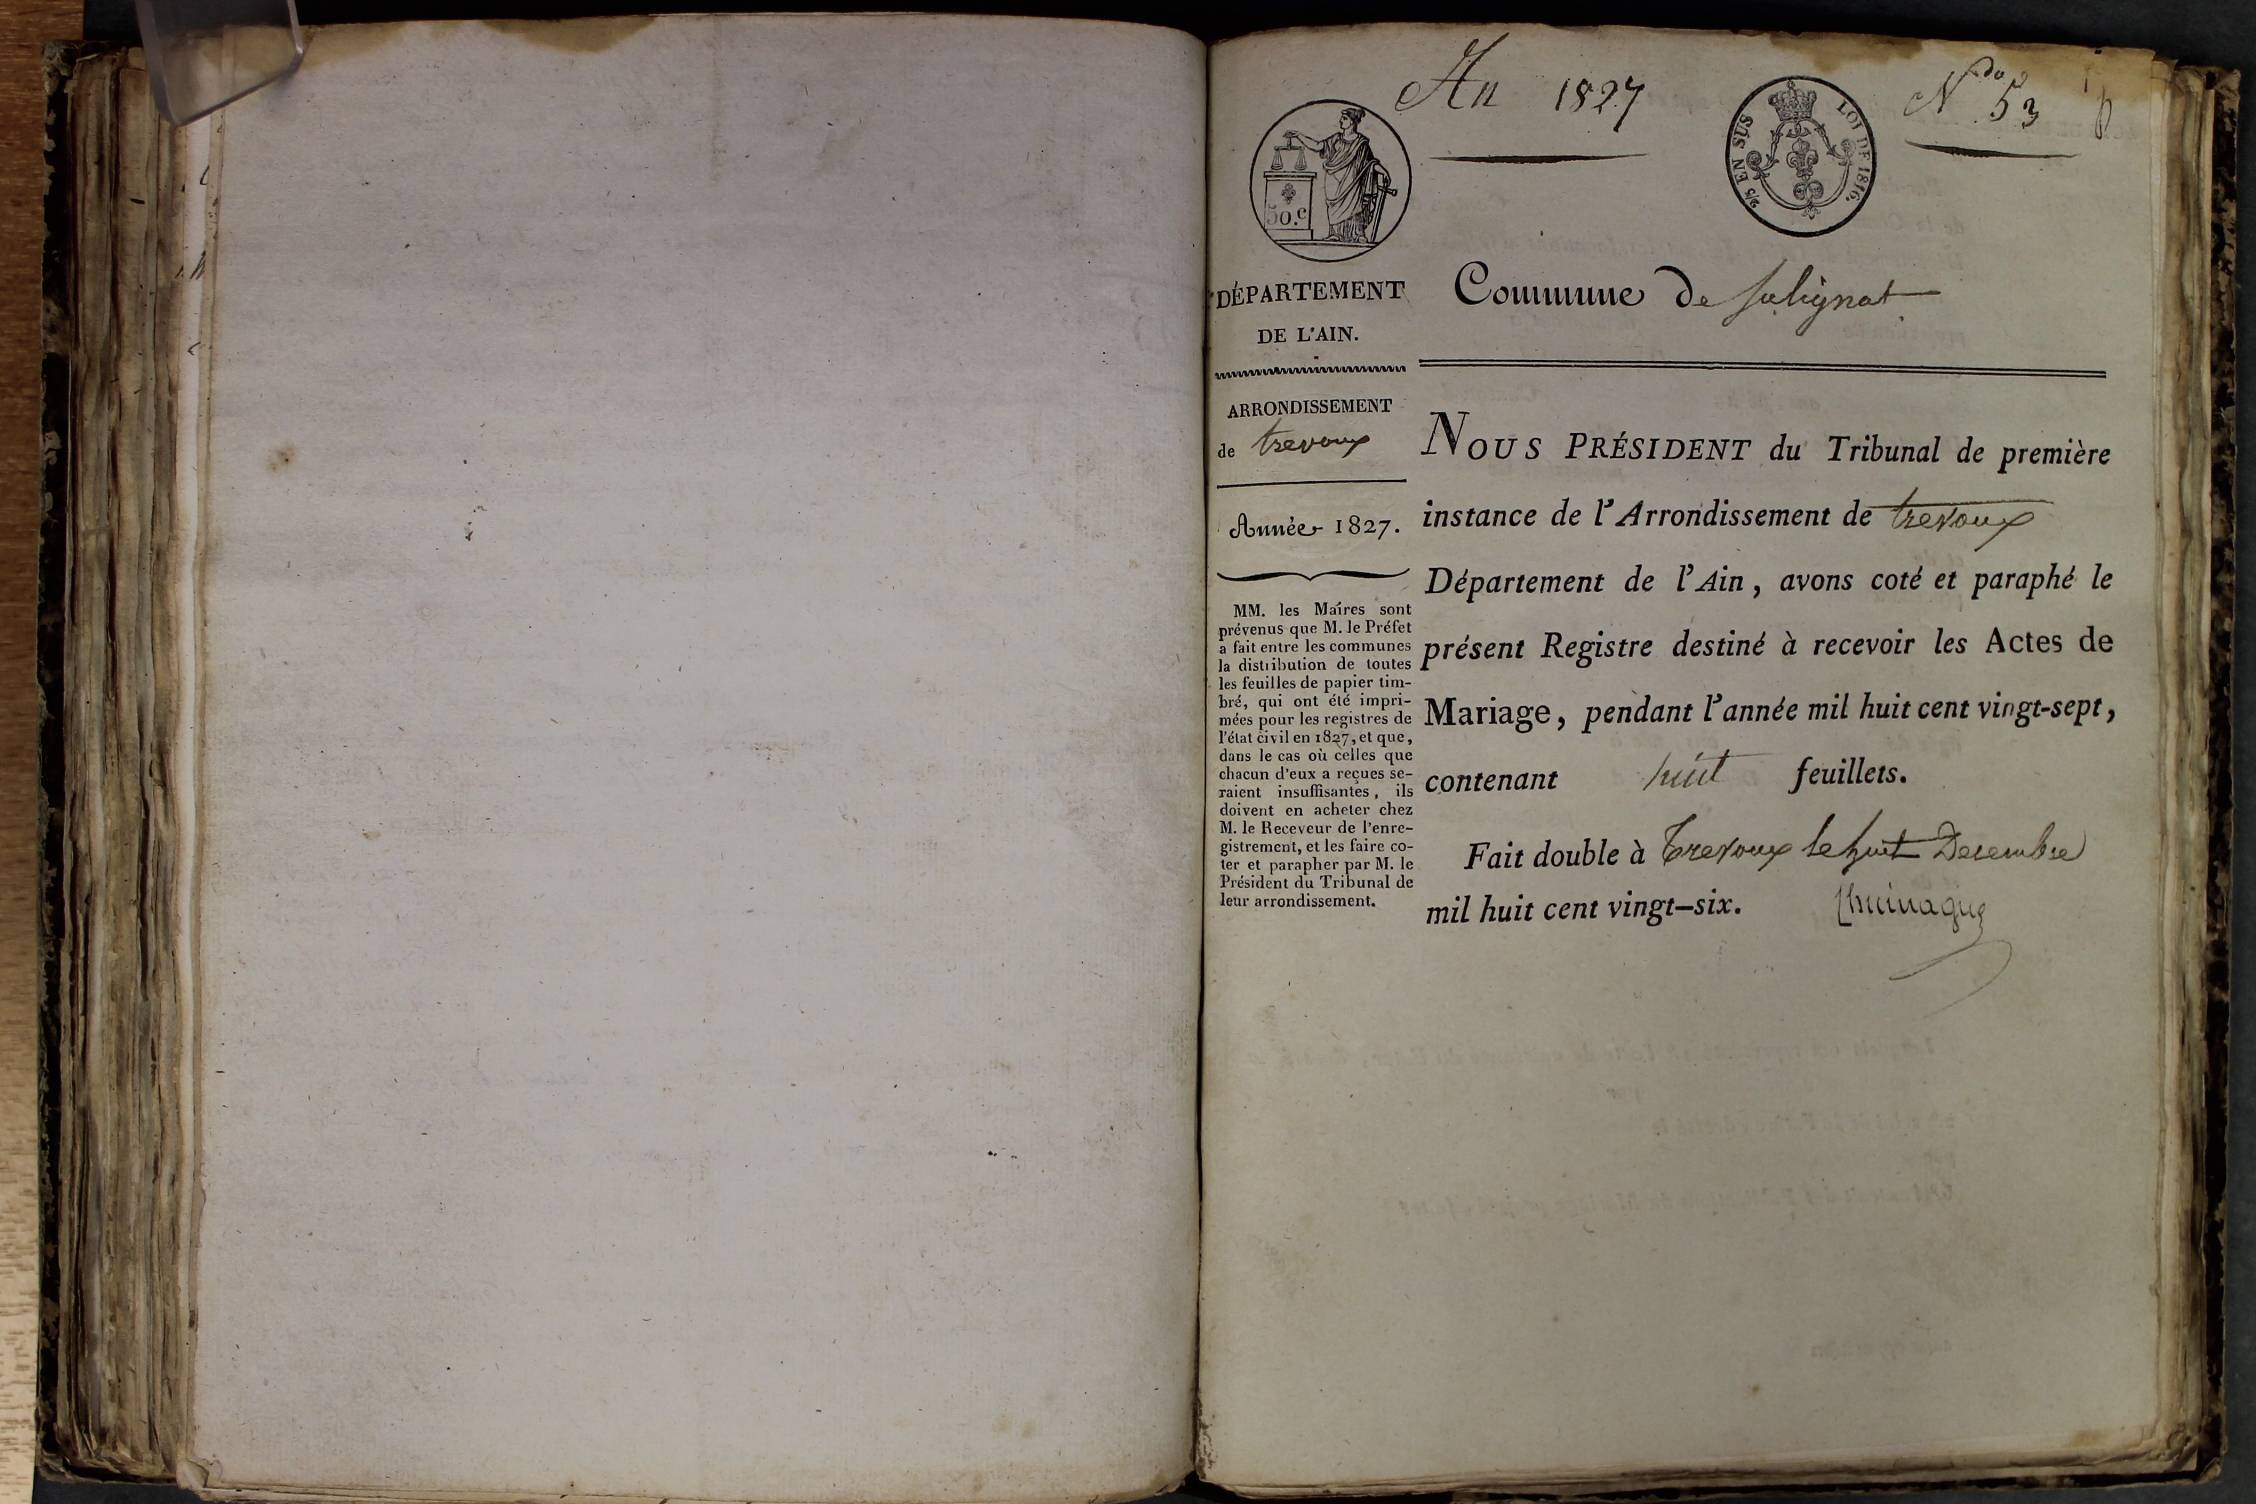 An 1827
Ndo 53
50.c
2/5 EN SUS
LOI DE 1816.
DÉPARTEMENT
DE L'AIN.
ARRONDISSEMENT
de trevoux
Année 1827.
MM. les Maires sont
prévenus que M. le Préfet
a fait entre les communes
la distribution de toutes
les feuilles de papier tim-
bré, qui ont été impri-
mées pour les registres de
l'état civil en 1827, et que,
dans le cas où celles que
chacun d'eux a reçues se-
raient insuffisantes, ils
doivent en acheter chez
M. le Receveur de l'enre-
gistrement, et les faire co-
ter et parapher par M. le
Président du Tribunal de
leur arrondissement.
Commune de Sulignat
NOUS PRÉSIDENT du Tribunal de première
instance de l'Arrondissement de trevoux
Département de l'Ain, avons coté et paraphé le
présent Registre destiné à recevoir les Actes de
Mariage, pendant l'année mil huit cent vingt-sept,
contenant huit feuillets.
Fait double à Trevoux le huit Decembre
mil huit cent vingt-six.